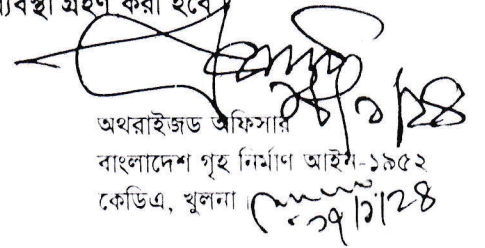 ব্যবস্থা গ্রহণ করা হবে
অথরাইজড অফিসার
বাংলাদেশ গৃহ নির্মাণ আইন-১৯৫২
কেডিএ, খুলনা।